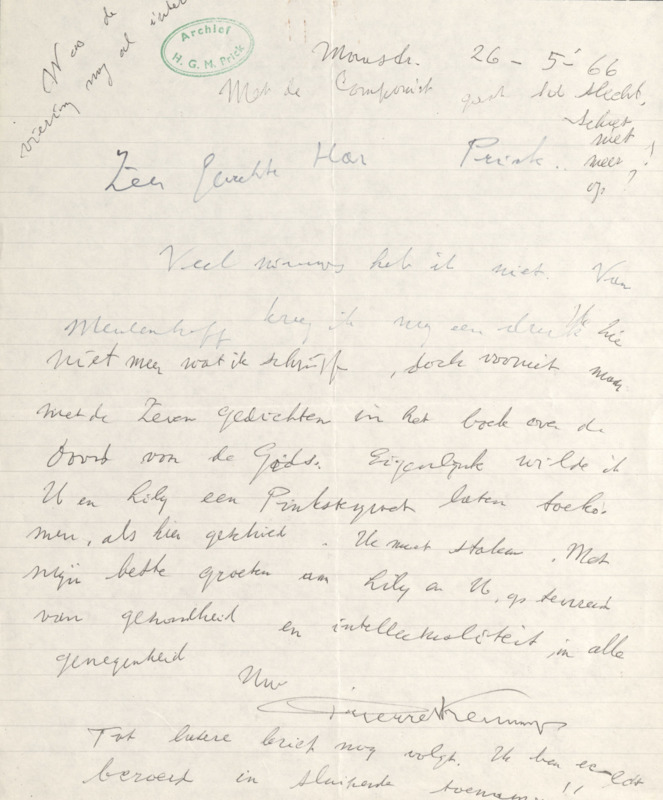 Was de
viering nog al
Archief
H. G. M. Prick
Maastr. 26 - 5 - 66
Met de Componist gaat het slecht,
schiet
niet
meer
op!?
Zeer Geachte Har Prick..
Veel nieuws heb ik niet. Van
Meulenhoff kreeg ik nog een druk Ik zie
niet meer wat ik schrijf, doch vooruit maar
met de Zeven gedichten in het boek over de
Dood van de Gids. Eigenlijk wilde ik
U en Lily een Pinkstergroet laten toeko-
men, als hier geschied. Ik moet staken. Met
mijn beste groeten aan Lily en U, op terrein
van gezondheid en intellectualiteit, in alle
genegenheid
Uw
Pierre Kemp
Tot latere brief nog volgt. Ik ben
beroerd in sluipende toename!!